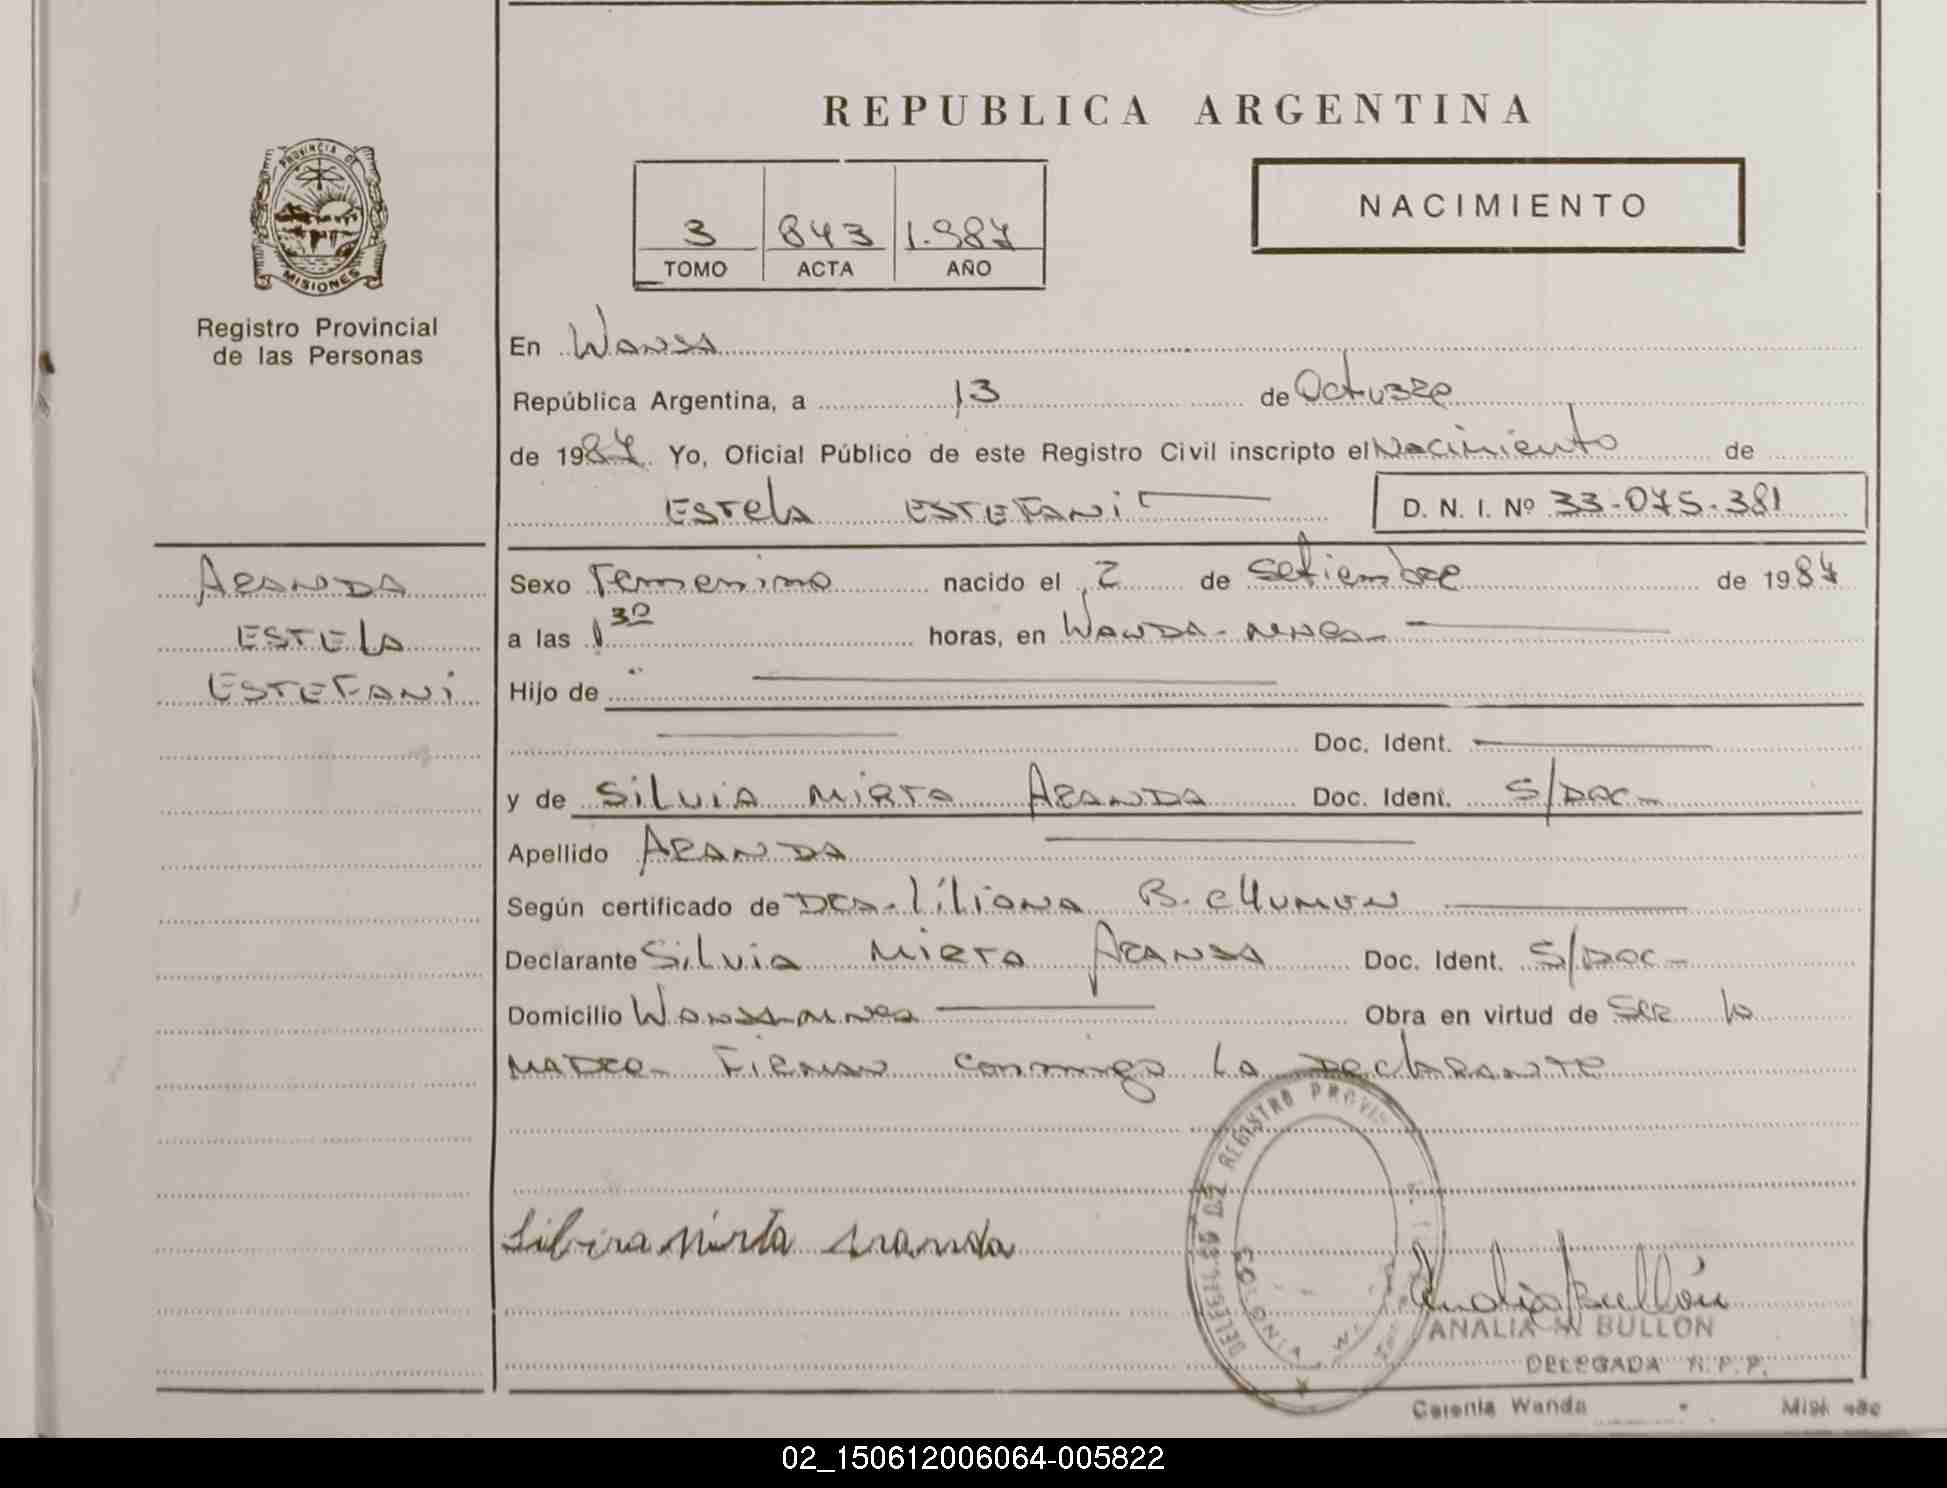 REPUBLICA ARGENTINA
NACIMIENTO
3 843 1.987
TOMO ACTA AÑO
PROVINCIA DE
MISIONES
Registro Provincial
de las Personas
En Wanda
República Argentina, a 13 de Octubre
de 1987. Yo, Oficial Público de este Registro Civil inscripto el Nacimiento de
Estela ESTEFANI D. N. I. Nº 33-075-381
ARANDA
ESTELA
ESTEFANI
Sexo Femenino nacido el 2 de Setiembre de 1987
a las 1 30 horas, en WANDA-
Hijo de
Doc. Ident.
y de Silvia Mirta ARANDA Doc. Ident. S/DOC-
Apellido ARANDA
Según certificado de DRA. Liliana B.
Declarante Silvia Mirta ARANDA Doc. Ident. S/DOC-
Domicilio Wanda- Obra en virtud de Ser la
MADRE- FIRMAN conmigo LA DEClARANTE
DELEGACION DEL REGISTRO PROVIN
COLONIA W
Silvia Mirta Aranda
Analia Bullón
ANALIA M. BULLON
DELEGADA R.P.P.
Colonia Wanda - Misiones
02_150612006064-005822